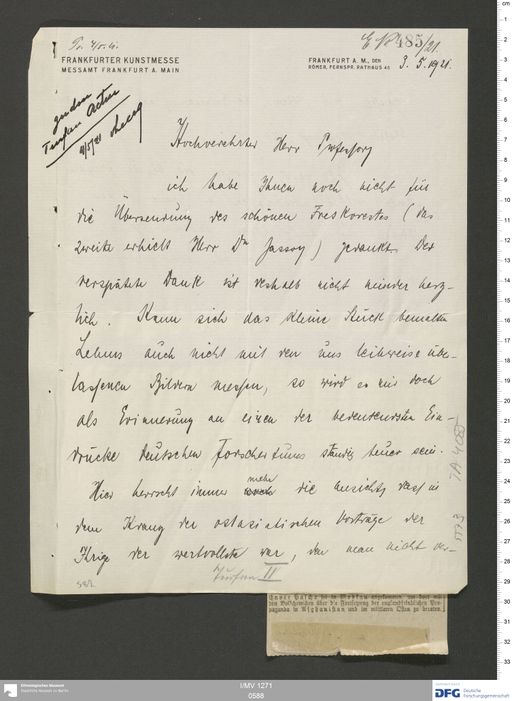 Pr. 4/5. 21.
E No 485/21.
FRANKFURTER KUNSTMESSE
MESSAMT FRANKFURT A. MAIN
FRANKFURT A. M., DEN 3. 5. 1921.
RÖMER, FERNSPR. RATHAUS
zu den
Turfan Acten
4/5/21
Hochverehrter Herr Professor,
ich habe Ihnen noch nicht für
die Übersendung des schönen Freskorestes (das
zweite erhielt Herr Dr Jassoy) gedankt. Der
verspätete Dank ist deshalb nicht minder herz-
lich. Kann sich das kleine Stück bemalten
Lehms auch nicht mit den uns leihweise über-
lassenen Bildern messen, so wird es mir doch
als Erinnerung an einen der bedeutendsten Ein-
drücke deutschen Forschertums ständig teuer sein.
Hier herrscht immer mehr die Ansicht, dass in
dem Kranz der ostasiatischen Vorträge der
Ihrige der wertvollste war, den man nicht ver-
Turfan II
TA 4055
den Bolschewisten über die Fortsetzung der englandfeindlichen Pro-
paganda in Afghanistan und im mittleren Osten zu beraten.
Ethnologisches Museum
Staatliche Museen zu Berlin
I/MV 1271
0588
DFG
Deutsche
Forschungsgemeinschaft